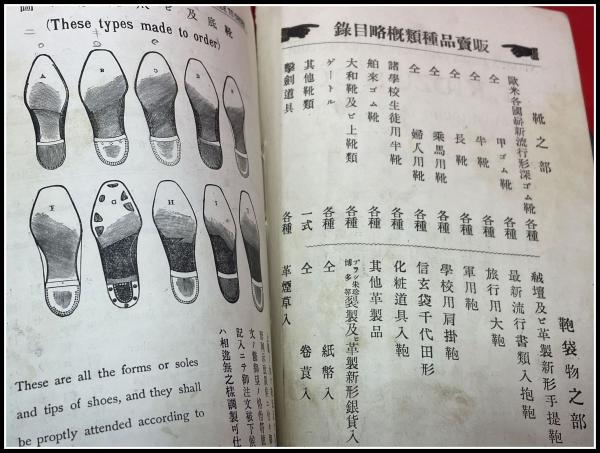 (These types made to order)
A
B
C
E
F
D
H
I
These are all the forms or soles
and tips of shoes, and they shall
be proptly attended according to
記入ニテ御注文被下候
ハ相違無之樣調製可仕
錄目略概類種品賣販
靴之部
歐米各國嶄新流行形深ゴム靴 各種
仝 甲ゴム靴 各種
仝 半靴 各種
仝 長靴 各種
仝 乘馬用靴 各種
仝 婦人用靴 各種
諸學校生徒用半靴 各種
舶来ゴム靴 各種
大和靴及ビ上靴類 各種
ゲートル 各種
其他靴類 一式
擊劍道具 各種
鞄袋物之部
絨壇及ビ革製新形手提鞄
最新流行書類入抱鞄
旅行用大鞄
軍用鞄
學校用肩掛鞄
信玄袋千代田形
化粧道具入鞄
其他革製品
製及ビ革製新形銀貨入
仝 紙幣入
仝 卷莨入
革煙草入